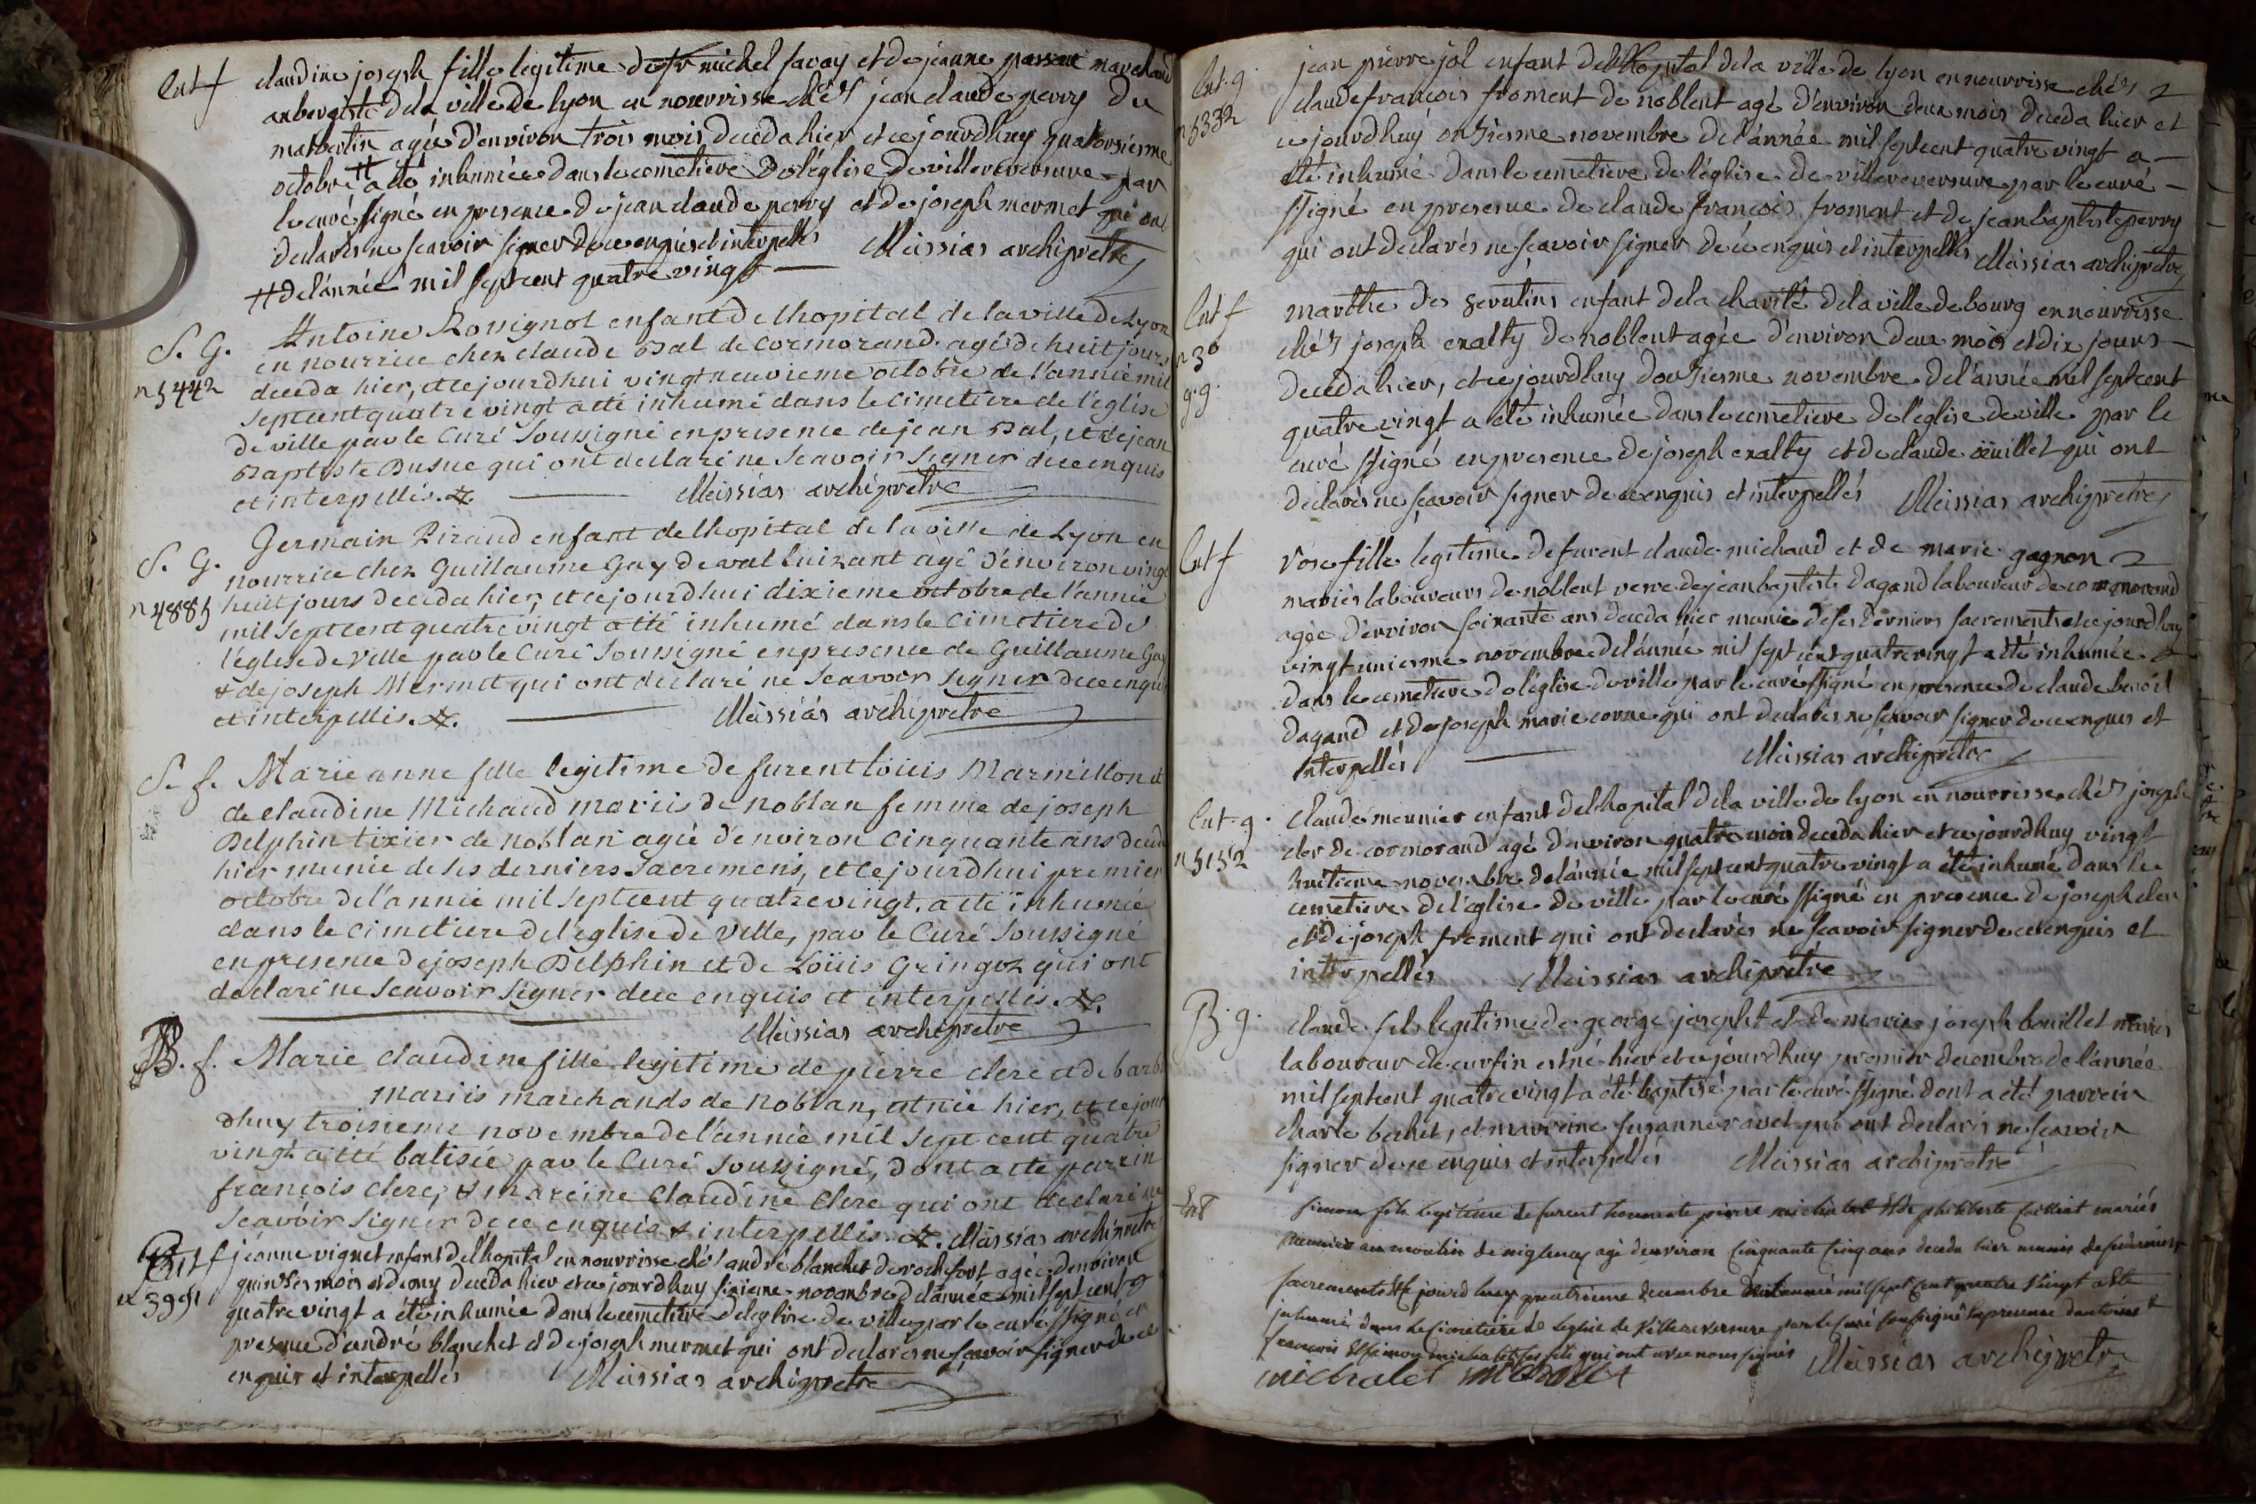 Ent f claudine joseph fille legitime de sr michel favay et de jeanne marchand
aubergiste de la ville de lyon en nourrisse chés jean claude perry du
marbertin agée d'environ trois mois deceda hier et ce jourdhuy quatorsiesme
octobre # a eté inhumée dans le cemetiere de l'église de villereversure par
le curé ssigné en presence de jean claude perry et de joseph mermet qui ont
declarés ne scavoir signer de ce enquis et interpellés Messias archipretre
# de l'année mil sept cent quatre vingt
S. G. Antoine Rossignol enfant de lhopital de la ville de Lyon
n 5442 en nourrice chez claude Bal de cormorand agé de huit jours
deceda hier, et ce jourdhui vingt neuvieme octobre de l'année mil
sept cent quatre vingt a eté inhumé dans le cimetiere de l'église
de ville par le Curé Soussigné en presence de jean Bal, et de jean
Baptiste Busue qui ont declaré ne Scavoir Signer de ce enquis
et interpellés. &. Messias archipretre
S. G. Germain Piraud enfant de lhopital de la ville de Lyon en
nourrice chez Guillaume Gay de val Luizant agé d'environ vingt
n 4885 huit jours deceda hier, et ce jourd'hui dixieme octobre de l'année
mil sept cent quatre vingt a eté inhumé dans le Cimetiere de
l'église de ville par le Curé Soussigné en presence de Guillaume Gay
& de joseph Mermet qui ont declaré ne Scavoir Signer de ce enquis
et interpellés. &. Messias archipretre
S. f. Marie anne fille legitime de furent Louis Marmillon et
de claudine Michaud mariés de Noblan femme de joseph
Delphin tixier de Noblan agée d'environ Cinquante ans deceda
hier munie de ses derniers Sacremens, et ce jourdhui premier
octobre de l'année mil sept cent quatre vingt. a eté inhumée
dans le Cimetiere de l'eglise de Ville, par le Curé Soussigné
en presence de joseph Delphin et de Loüis Gringoz qui ont
declaré ne Scavoir Signer de ce enquis et interpellés. &.
Messias archipretre
B. f. Marie claudine fille legitime de pierre clerc et de barbe
mariés marchands de Noblan, est née hier, et ce jour
dhuy troisieme novembre de l'année mil sept cent quatre
vingt a eté batisée par le Curé Soussigné, dont a eté parrein
françois clerc, & mareine Claudine clerc qui ont declaré ne
Scavoir Signer de ce enquis & interpellés. &. Messias archipretre
Ent f jeanne vignet enfant de lhopital en nourrisse chés andré blanchet de rochefort agée denviron
quinses mois et demy deceda hier et ce jourdhuy sixieme novembre de l'année mil sept cent
n 3991 quatre vingt a été inhumée dans le cemetiere de leglise de ville par le curé ssigné en
presence d'andré blanchet et de joseph mermet qui ont declarés ne scavoir signer de ce
enquis et interpellés Messias archipretre
Ent. g. jean pierre jol enfant de lhopital de la ville de lyon en nourrisse chés
n 5332 claude françois froment de noblent agé d'environ deux mois deceda hier et
ce jourdhuy onziesme novembre de l'année mil sept cent quatre vingt a
été inhumé dans le cemetiere de l'église de villereversure par le curé
ssigné en presence de claude françois froment et de jean baptiste perry
qui ont declarés ne scavoir signer de ce enquis et interpellés Messias archipretre
Ent f marthe des enfant de la charité de la ville de bourg en nourrisse
n 36 chés joseph exalty de noblent agée d'environ deux mois et dix jours
g.g. deceda hier, et ce jourdhuy douziesme novembre de l'année mil sept cent
quatre vingt a été inhumée dans le cemetiere de l'église de ville par le
curé ssigné en presence de joseph exalty et de claude oeuillet qui ont
declarés ne scavoir signer de ce enquis et interpellés Messias archipretre
Ent f rose fille legitime de furent claude michaud et de marie gagnon
mariés laboureurs de noblent veuve de jean baptiste dagand laboureur de cormorand
agée d'environ soixante ans deceda hier munie de ses derniers sacrements et ce jourdhuy
vingt uniesme novembre de l'année mil sept cent quatre vingt a été inhumée
dans le cemetiere de l'église de ville par le curé ssigné en presence de claude benoit
dagand et de joseph marie corne qui ont declarés ne scavoir signer de ce enquis et
interpellés Messias archipretre
Ent. g. claude meunier enfant de lhopital de la ville de lyon en nourrisse chés joseph
n 5152 cler de cormorand agé d'environ quatre mois deceda hier et ce jourdhuy vingt
huitieme novembre de l'année mil sept cent quatre vingt a été inhumé dans le
cemetiere de l'église de ville par le curé ssigné en presence de joseph cler
et de joseph froment qui ont declarés ne scavoir signer de ce enquis et
interpellés Messias archipretre
B. g. claude fils legitime de george josephet et de marie joseph bouillet mariés
laboureur de curfin est né hier et ce jourdhuy premier decembre de l'année
mil sept cent quatre vingt a été baptisé par le curé ssigné dont a été parrein
charle bechet, et marreine suzanne ravet qui ont declarés ne scavoir
signer de ce enquis et interpellés Messias archipretre
Ent simon fils legitime de furent honneste pierre michalet et de philiberte mariés
meunier au moulin de agé denviron cinquante cinq ans deceda hier munis de ses derniers
sacrements et ce jourd huy quatrieme decembre de l'année mil sept cent quatre vingt a ete
inhumé dans le cimetiere de leglise de villereversure par le curé soussigné en presence
francois et simon michalet ses fils qui ont avec nous signés Messias archipretre
michalet michalet